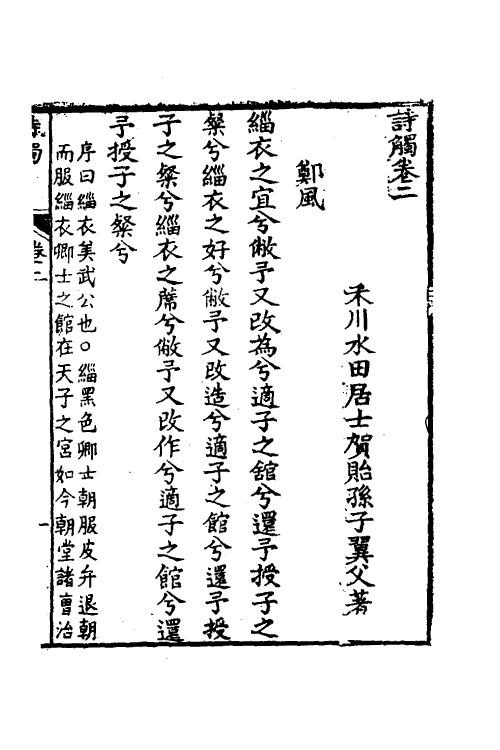 詩觸卷二
禾川水田居士賀貽孫子翼父著
鄭風
緇衣之宜兮敝予又改為兮適子之舘兮還予授子之
粲兮緇衣之好兮敝予又改造兮適子之館兮還予授
子之粲兮緇衣之蓆兮敝予又改作兮適子之館兮還
予授子之粲兮
序曰緇衣美武公也○緇黑色卿士朝服皮弁退朝
而服緇衣卿士之館在天子之宮如今朝堂諸曹治
詩觸
卷二
一